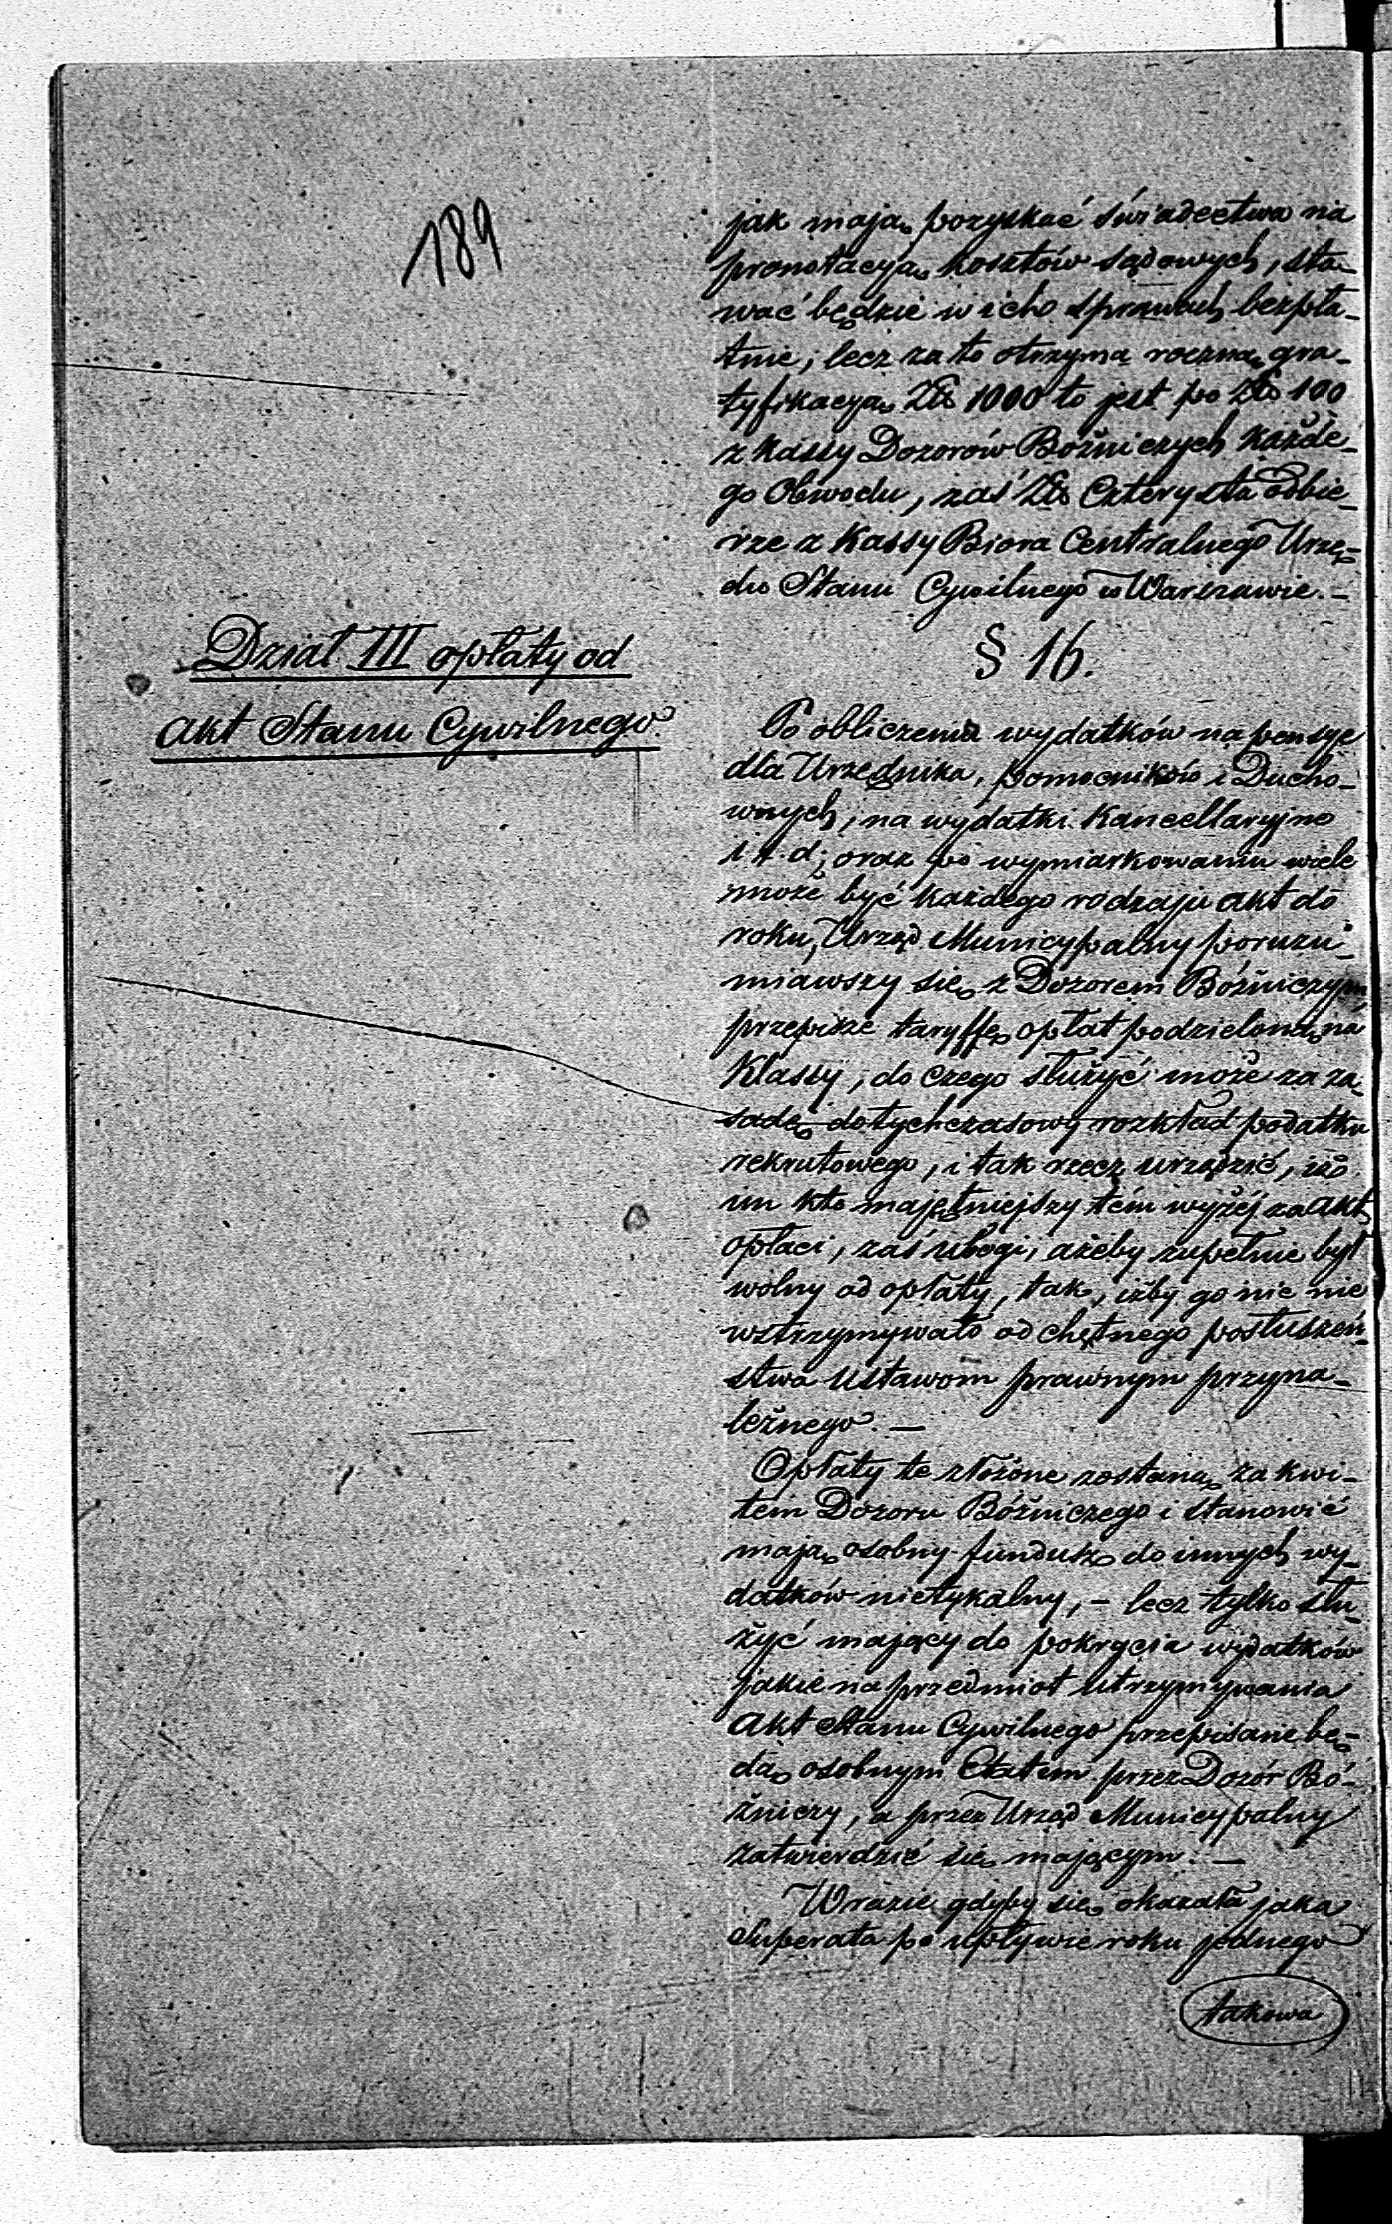 189
jak mają pozyskać świadectwa na
pronotacyą kosztów sądowych, sta-
wać będzie w ich sprawach bezpła-
tnie; lecz za to otrzyma roczną gra-
tyfikacyą Złp 1000 to jest po Złp 100
z kassy Dozorów Bóżniczych każde-
go Obwodu, zaś Złp Czterysta odbie-
rze z Kassy Biora Centralnego Urzę-
du Stanu Cywilnego w Warszawie. -
Dział III opłaty od
akt Stanu Cywilnego.
§ 16.
Po obliczeniu wydatków na pensye
dla Urzędnika, pomocników i Ducho-
wnych, na wydatki Kancellaryjne
i t. d; oraz po wymiarkowaniu wiele
może być każdego rodzaju akt do
roku, Urząd Municypalny porozu-
miawszy się z Dozorem Bóżniczym,
przepisze taryffę opłat podzieloną na
Klassy, do czego służyć może za za-
sadę dotychczasowy rozkład podatku
rekrutowego, i tak rzecz urządzić, iżo
im kto majętniejszy tém wyżéj za akt
opłaci, zaś ubogi, ażeby zupełnie był
wolny od opłaty, tak, iżby go nic nie
wstrzymywało od chętnego posłuszeń-
stwa Ustawom prawnym przyna-
leżnego. -
Opłaty te złożone zostaną za kwi-
tem Dozoru Bóżniczego i stanowić
mają osobny fundusz do innych wy-
datków nietykalny, - lecz tylko słu-
żyć mający do pokrycia wydatków
jakie na przedmiot utrzymywania
akt Stanu Cywilnego przepisane bę-
dą osobnym Etatem przez Dozór Bó-
żniczy, a przez Urząd Municypalny
zatwierdzić się mającym. -
W razie gdyby się okazała jaka
Superata po upływie roku jednego
takowa